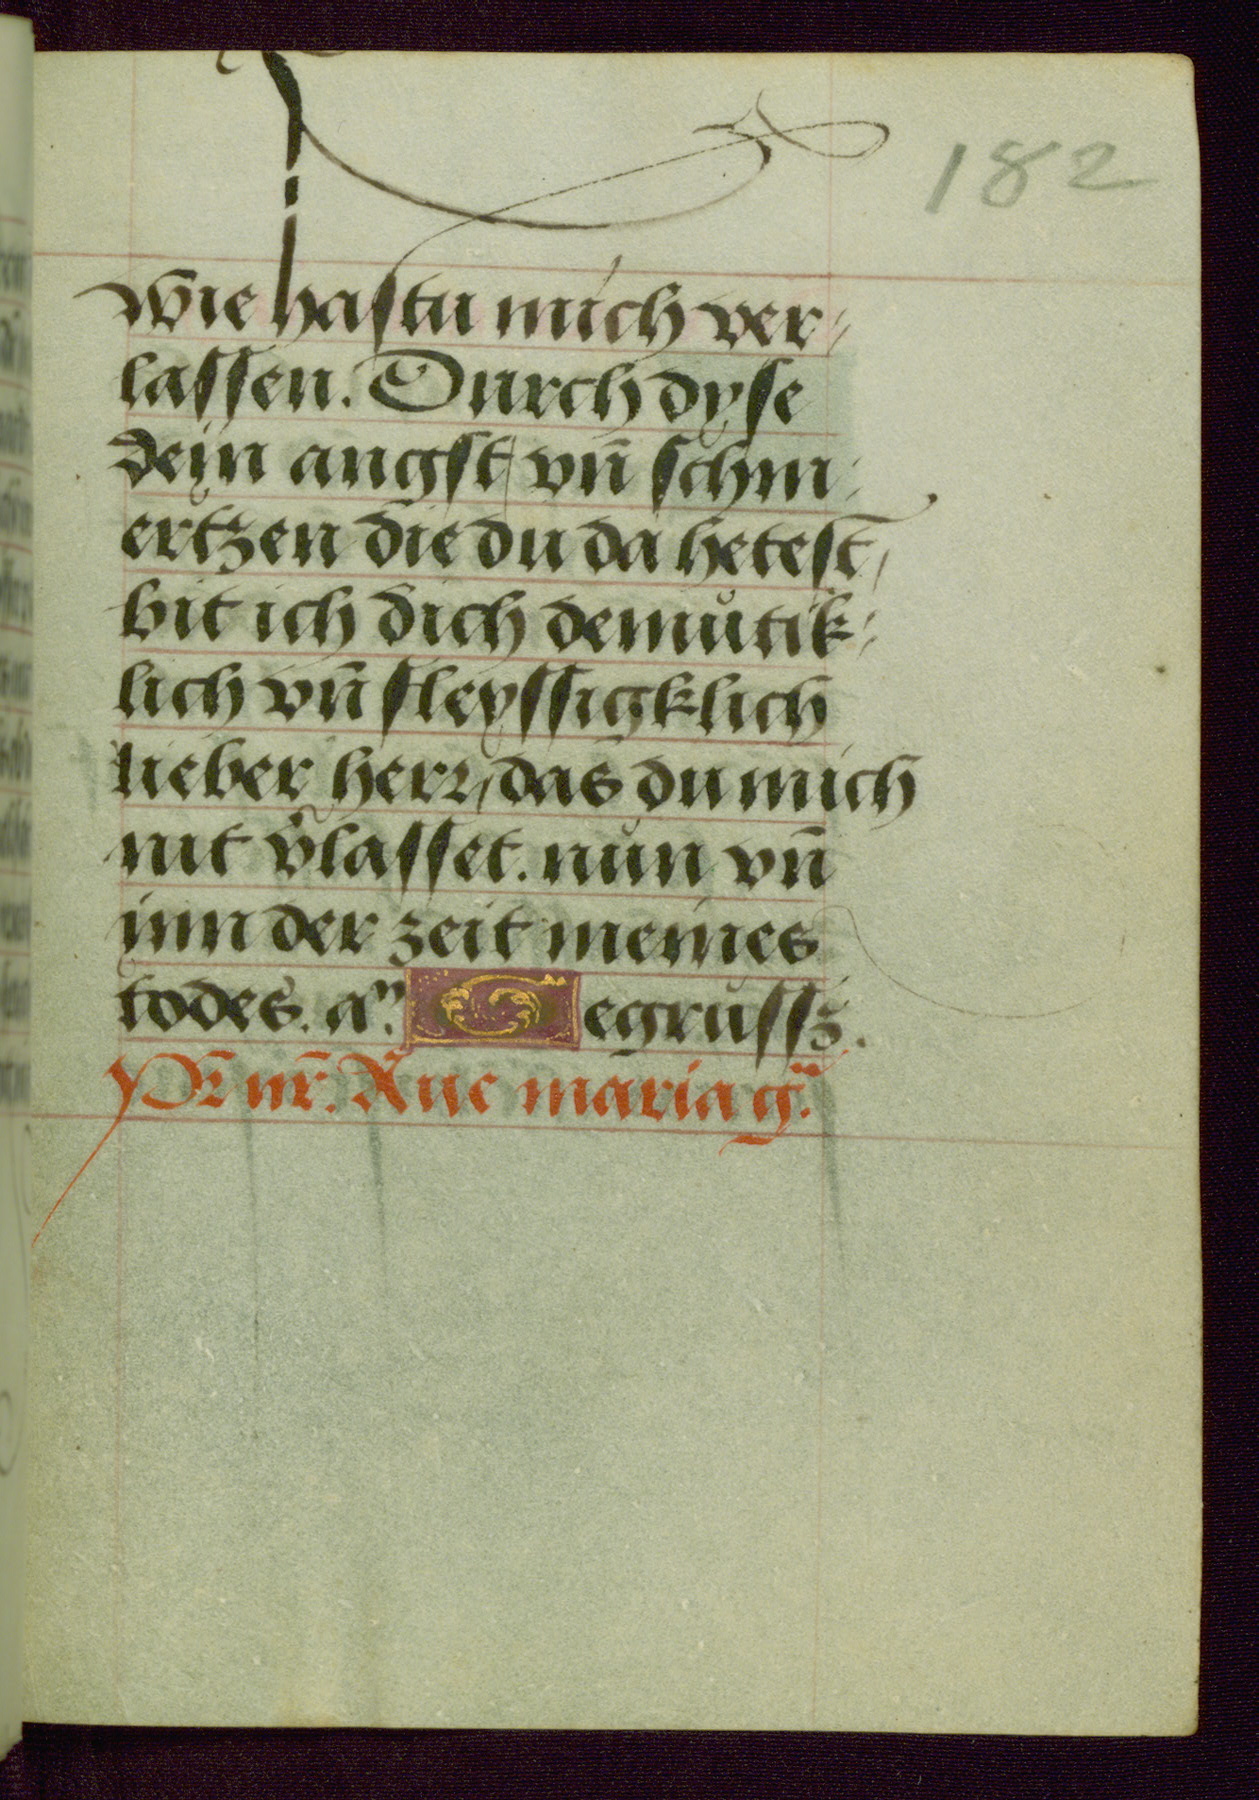 182
wie hastu mich ver/
lassen. Durch dyse
dein angst / vn̄ schm/
ertzen die du da hetest /
bit ich dich demůtik/
lich vn̄ fleyssigklich
lieber herr / das du mich
nit v̾lasset. nun vn̄
ynn der zeit meines
todes. a&#x304;. Gegrussz.
Pr̄ nr̄. Aue maria g̈.